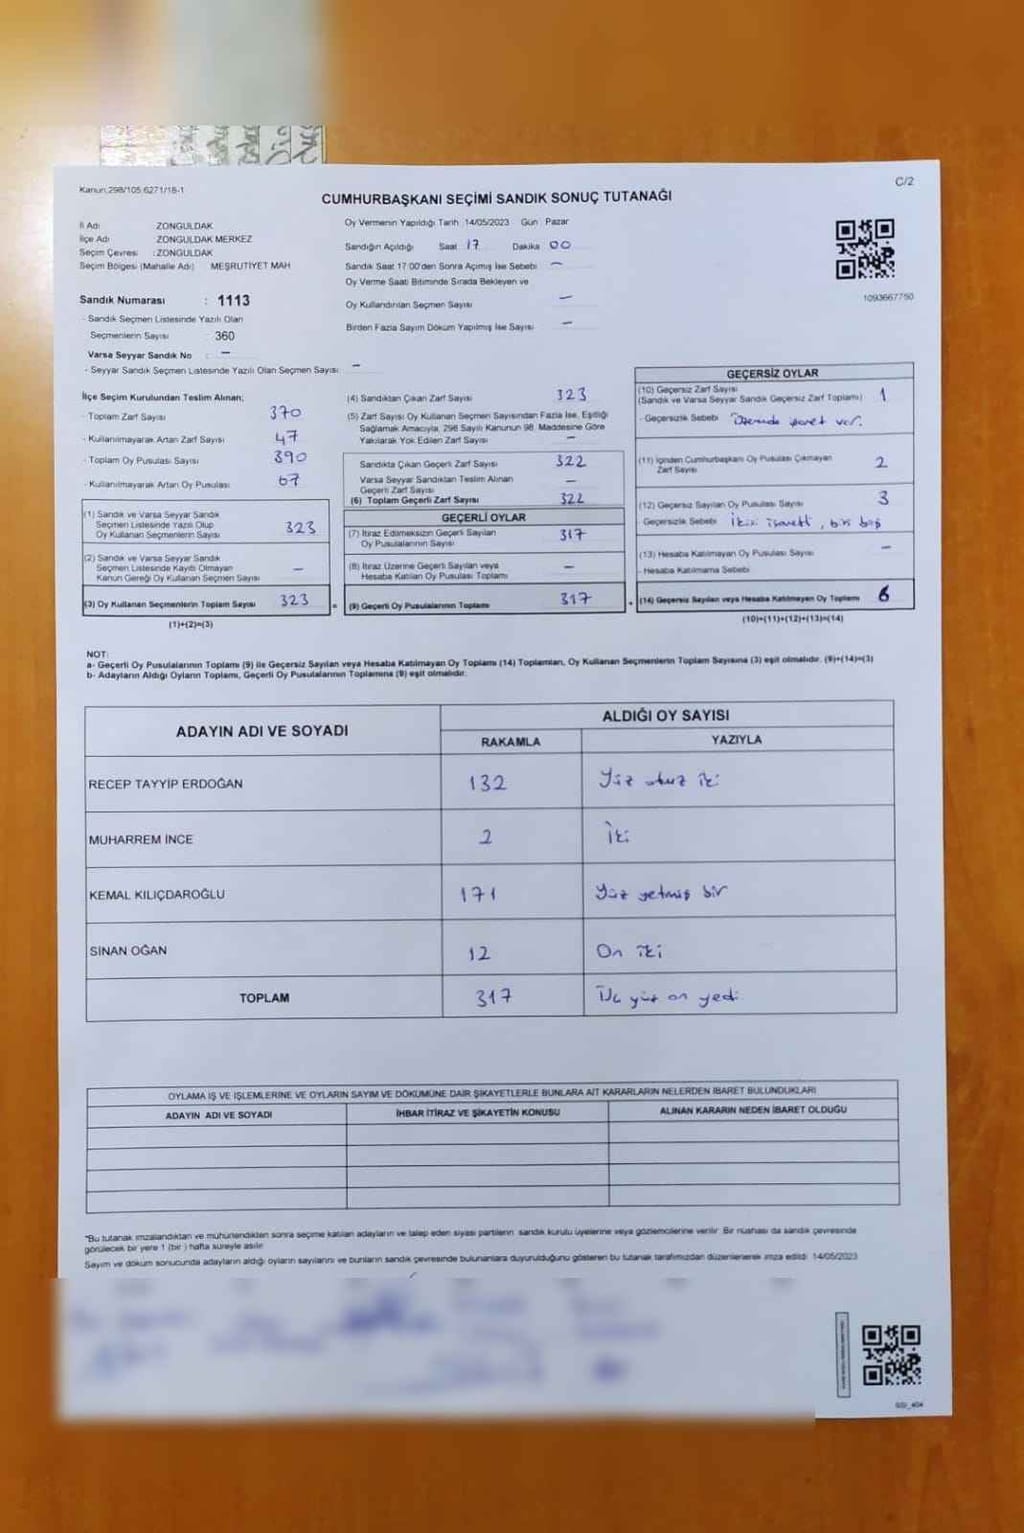 Kanun:298/105 6271/18-1
C/2
CUMHURBAŞKANI SEÇİMİ SANDIK SONUÇ TUTANAĞI
İl Adı : ZONGULDAK
İlçe Adı : ZONGULDAK MERKEZ
Seçim Çevresi : ZONGULDAK
Seçim Bölgesi (Mahalle Adı) MEŞRUTİYET MAH
Sandık Numarası : 1113
- Sandık Seçmen Listesinde Yazılı Olan
Seçmenlerin Sayısı 360
Varsa Seyyar Sandık No : –
- Seyyar Sandık Seçmen Listesinde Yazılı Olan Seçmen Sayısı: –
Oy Vermenin Yapıldığı Tarih :14/05/2023 Gün : Pazar
Sandığın Açıldığı Saat: 17 Dakika 00
Sandık Saat 17:00'den Sonra Açımış İse Sebebi –
Oy Verme Saati Bitiminde Sırada Bekleyen ve
Oy Kullandırılan Seçmen Sayısı –
Birden Fazla Sayım Döküm Yapılmış İse Sayısı –
1093667750
İlçe Seçim Kurulundan Teslim Alınan;
- Toplam Zarf Sayısı 370
- Kullanılmayarak Artan Zarf Sayısı 47
- Toplam Oy Pusulası Sayısı 390
- Kullanılmayarak Artan Oy Pusulası 67
(1) Sandık ve Varsa Seyyar Sandık
Seçmen Listesinde Yazılı Olup
Oy Kullanan Seçmenlerin Sayısı 323
(2) Sandık ve Varsa Seyyar Sandık
Seçmen Listesinde Kayıtlı Olmayan
Kanun Gereği Oy Kullanan Seçmen Sayısı –
(3) Oy Kullanan Seçmenlerin Toplam Sayısı 323
(1)+(2)=(3)
(4) Sandıktan Çıkan Zarf Sayısı 323
(5) Zarf Sayısı Oy Kullanan Seçmen Sayısından Fazla İse, Eşitliği
Sağlamak Amacıyla, 298 Sayılı Kanunun 98. Maddesine Göre
Yakılarak Yok Edilen Zarf Sayısı –
Sandıkta Çıkan Geçerli Zarf Sayısı 322
Varsa Seyyar Sandıktan Teslim Alınan
Geçerli Zarf Sayısı –
(6) Toplam Geçerli Zarf Sayısı 322
GEÇERLİ OYLAR
(7) İtiraz Edilmeksizin Geçerli Sayılan
Oy Pusulalarının Sayısı 317
(8) İtiraz Üzerine Geçerli Sayılan veya
Hesaba Katılan Oy Pusulası Toplamı –
= (9) Geçerli Oy Pusulalarının Toplamı 317
GEÇERSİZ OYLAR
(10) Geçersiz Zarf Sayısı
(Sandık ve Varsa Seyyar Sandık Geçersiz Zarf Toplamı) 1
- Geçersizlik Sebebi Üzerinde işaret var.
(11) İçinden Cumhurbaşkanı Oy Pusulası Çıkmayan
Zarf Sayısı 2
(12) Geçersiz Sayılan Oy Pusulası Sayısı 3
Geçersizlik Sebebi İkisi işaretli, biri boş
(13) Hesaba Katılmayan Oy Pusulası Sayısı –
- Hesaba Katılmama Sebebi
+ (14) Geçersiz Sayılan veya Hesaba Katılmayan Oy Toplamı 6
(10)+(11)+(12)+(13)=(14)
NOT:
a- Geçerli Oy Pusulalarının Toplamı (9) ile Geçersiz Sayılan veya Hesaba Katılmayan Oy Toplamı (14) Toplamları, Oy Kullanan Seçmenlerin Toplam Sayısına (3) eşit olmalıdır. (9)+(14)=(3)
b- Adayların Aldığı Oyların Toplamı, Geçerli Oy Pusulalarının Toplamına (9) eşit olmalıdır.
ADAYIN ADI VE SOYADI
ALDIĞI OY SAYISI
RAKAMLA YAZIYLA
RECEP TAYYİP ERDOĞAN 132 Yüz otuz iki
MUHARREM İNCE 2 İki
KEMAL KILIÇDAROĞLU 171 Yüz yetmiş bir
SİNAN OĞAN 12 On iki
TOPLAM 317 Üç yüz on yedi
OYLAMA İŞ VE İŞLEMLERİNE VE OYLARIN SAYIM VE DÖKÜMÜNE DAİR ŞİKAYETLERLE BUNLARA AİT KARARLARIN NELERDEN İBARET BULUNDUKLARI
ADAYIN ADI VE SOYADI İHBAR İTİRAZ VE ŞİKAYETİN KONUSU ALINAN KARARIN NEDEN İBARET OLDUĞU
*Bu tutanak imzalandıktan ve mühürlendikten sonra seçime katılan adayların ve talep eden siyasi partilerin sandık kurulu üyelerine veya gözlemcilerine verilir. Bir nüshası da sandık çevresinde
görülecek bir yere 1 (bir ) hafta süreyle asılır.
Sayım ve döküm sonucunda adayların aldığı oyların sayılarını ve bunların sandık çevresinde bulunanlara duyurulduğunu gösteren bu tutanak tarafımızdan düzenlenerek imza edildi. 14/05/2023